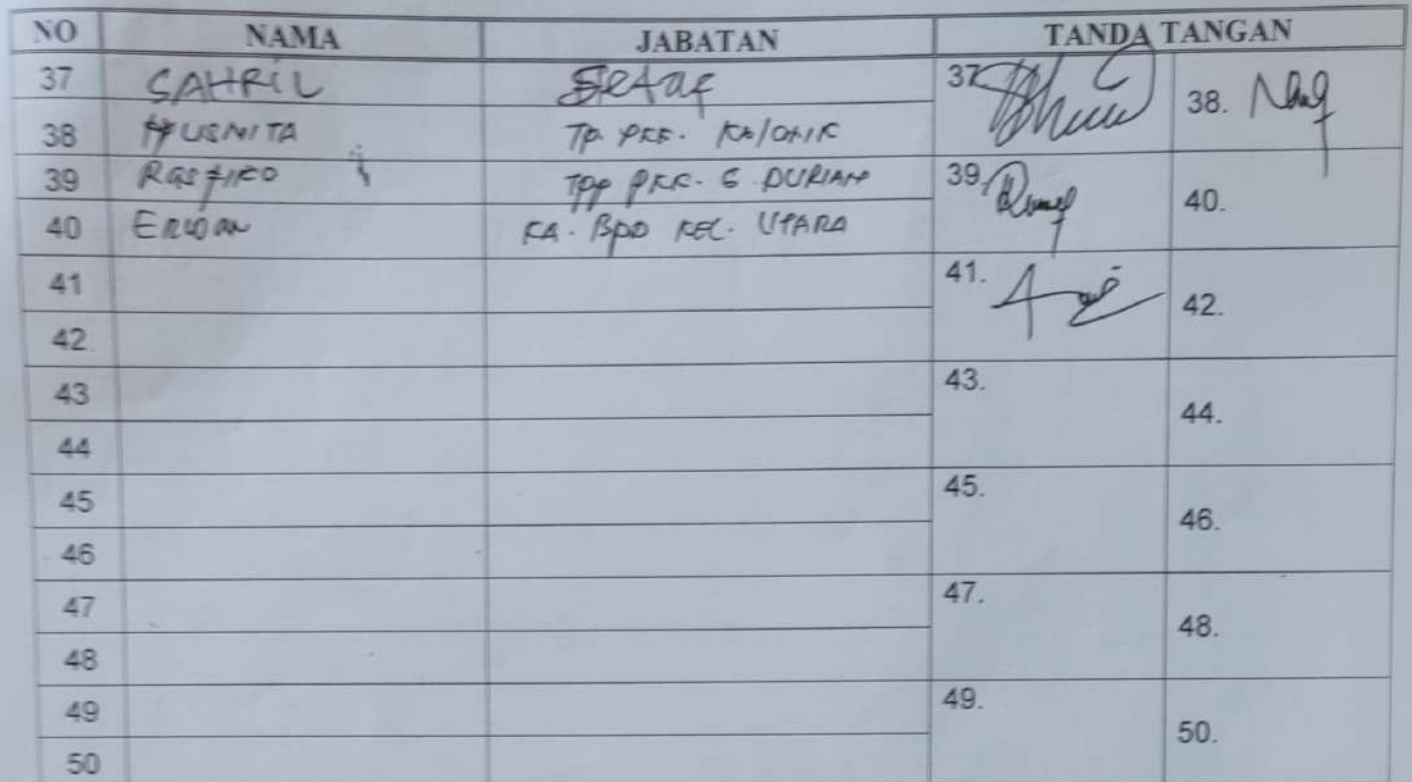 NO NAMA JABATAN TANDA TANGAN
37 SAHRIL Staf 37. 38.
38 HUSNITA TP. PKK.
39 39.
TPP PKK. S. DURIAN 40.
40 Erwan KA. BPD KEC. UTARA
41 41. 42.
42
43 43. 44.
44
45 45. 46.
46
47 47. 48.
48
49 49. 50.
50